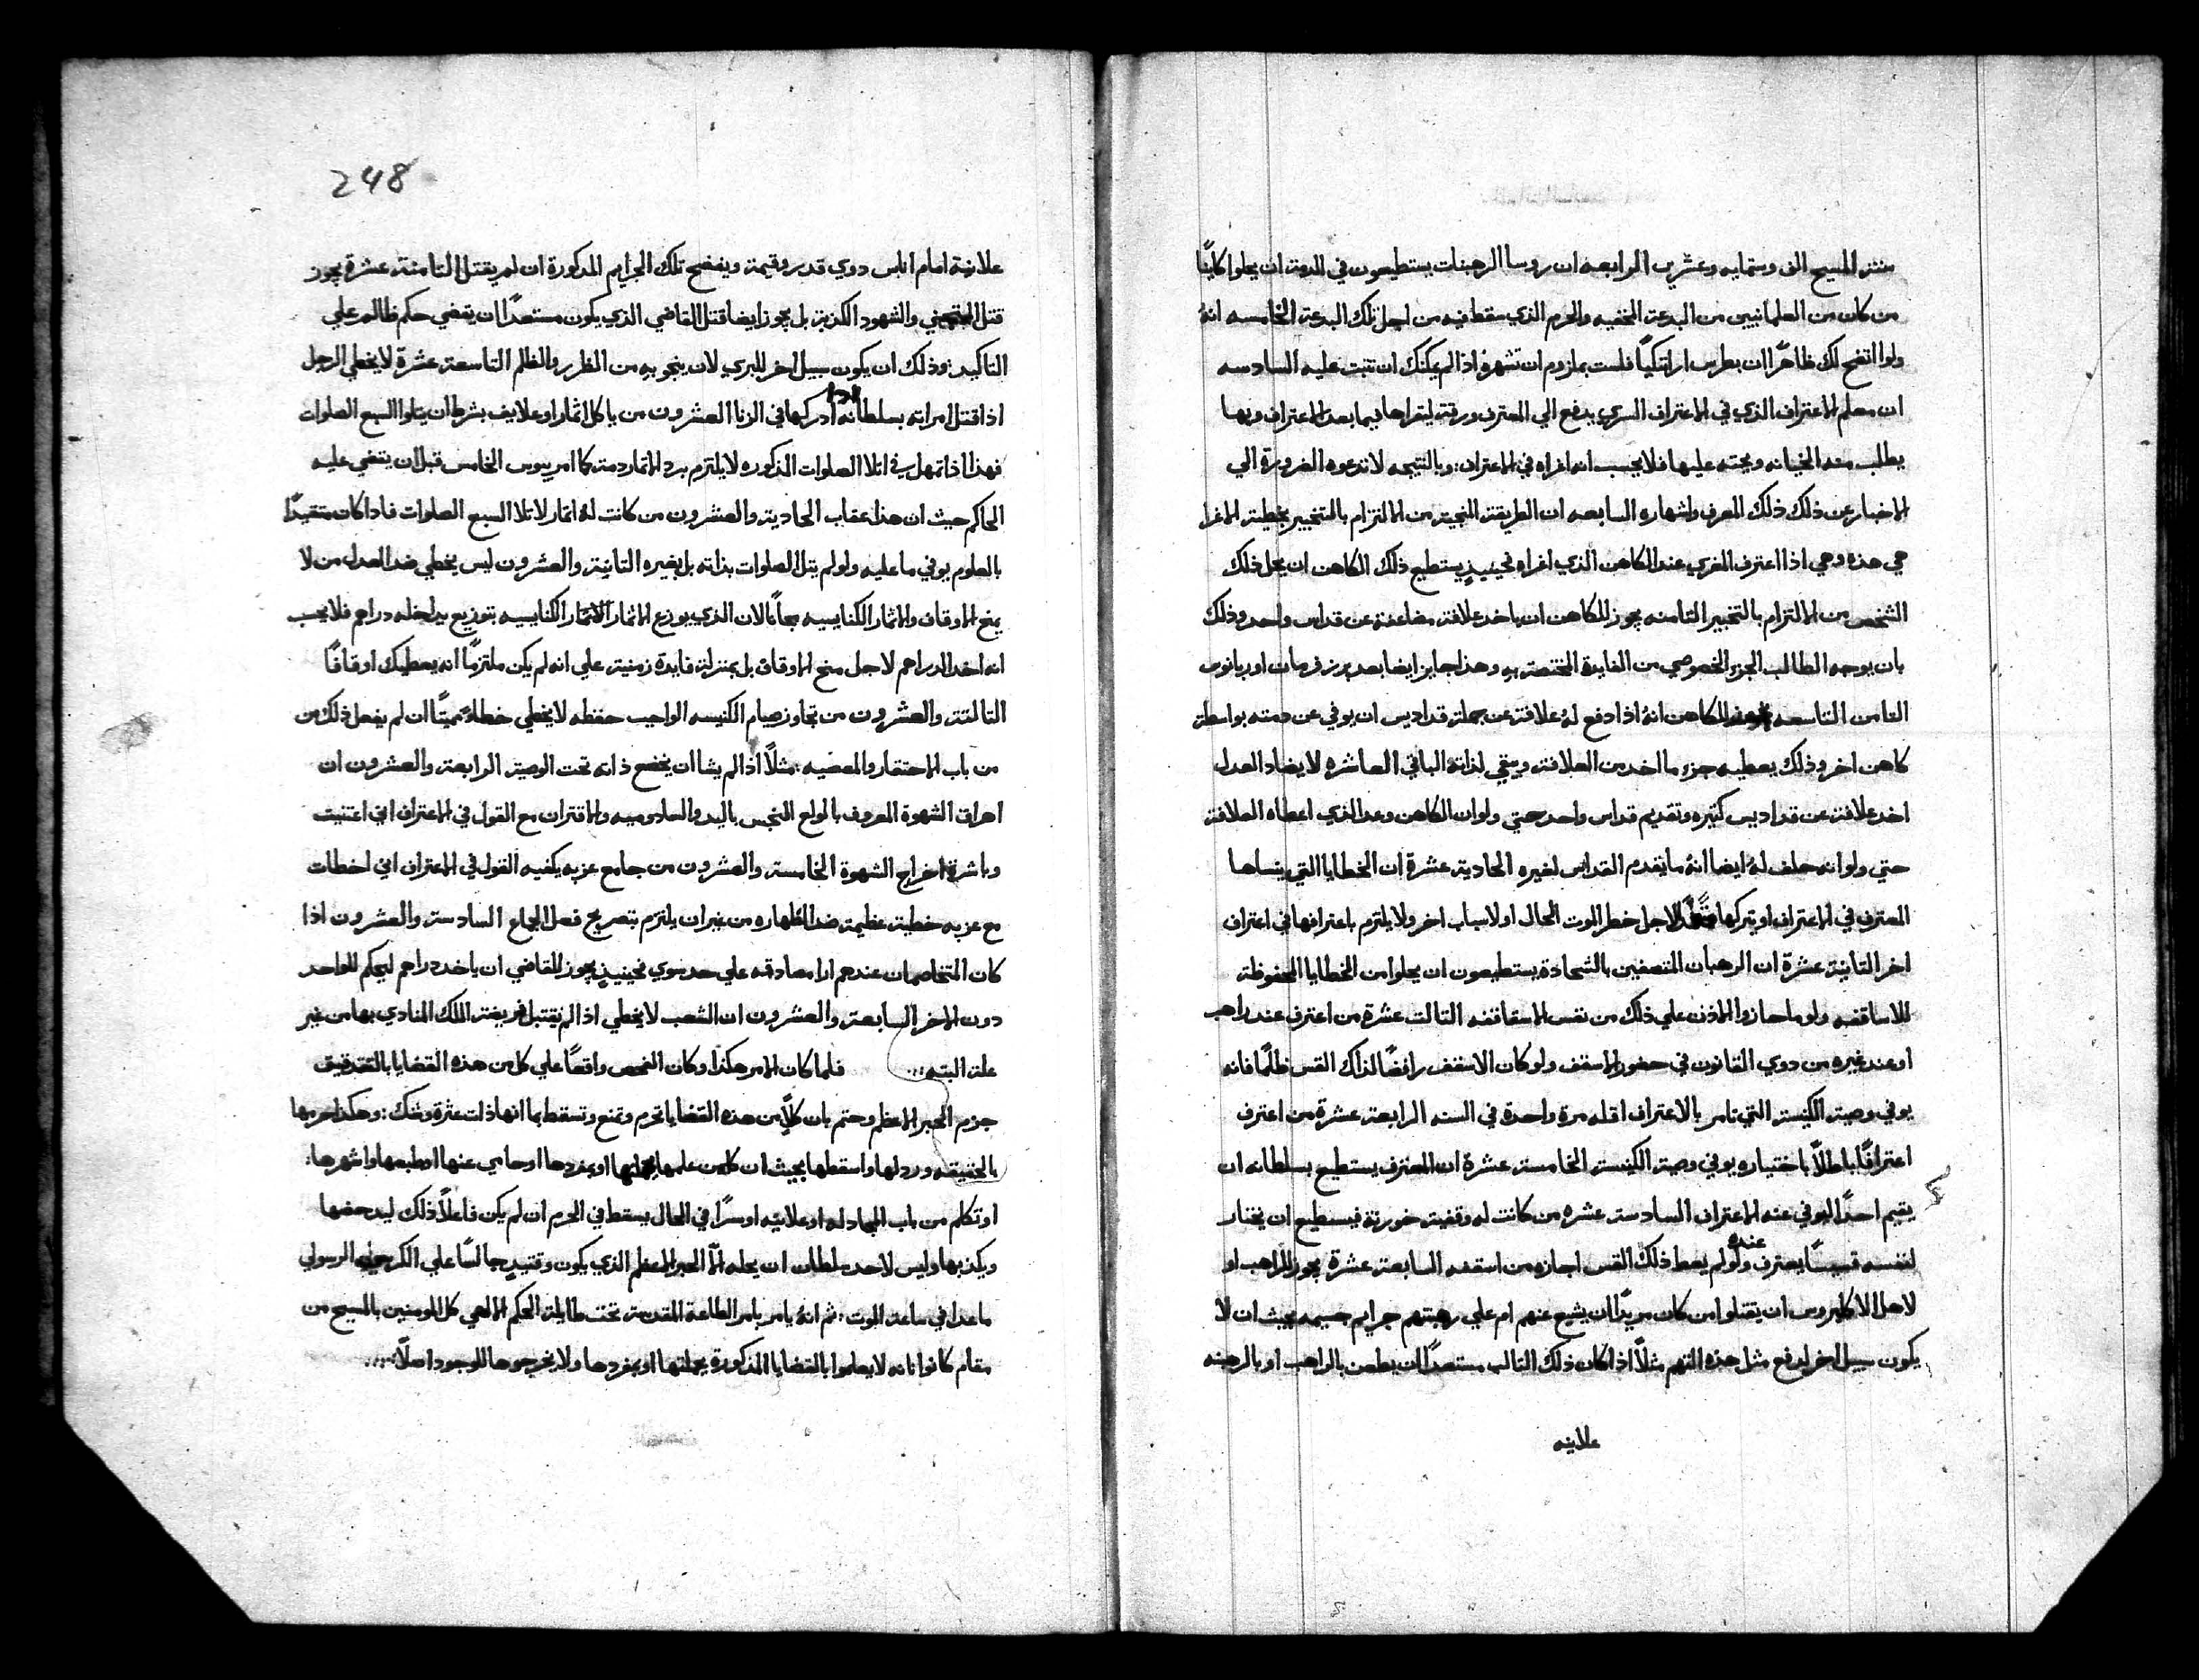 سنة المسيح الف وستمايه وعشرين الرابعه ان روسا الرهبنات يستطيعون في الدمة ان يحلوا كاينًا
من كان من العلمانيين من البدعة المخفيه والحرم الذي سقط فيه من اجل تلك البدعة الخامسه انهُ
ولوا اتضح لك ظاهرًا ان بطرس اراتيكيًا فلست بملزوم ان تشهرهُ اذا لم يمكنك ان تتبت عليه السادسه
ان معلم الاعتراف الذي في الاعتراف السري يدفع الي المعترف ورقة ليقراها فيما بعد الاعتراف وبها
يطلب منه الخيانه ويحته عليها فلا يحسب انه اغراه في الاعتراف: وبالنتيجه لا تدعوه الضرورة الي
الاخبار عن ذلك ذلك المعرف واشهاره السابعه ان الطريقة المنجية من الالتزام بالتخبير بخطية الاغرا
هي هذه وهي اذا اعترف المغري عند الكاهن الذي اغراه فحينيذٍ يستطيع ذلك الكاهن ان يحل ذلك
الشخص من الالتزام بالتخبير التامنه يجوز للكاهن ان ياخد علافة مضاعفة عن قداس واحد وذلك
بان يوجه الطالب الجزء الخصوصي من الفايدة المختصة بهِ وهذا جايز ايضا بعد بروز فرمان اوربانوس
التامن التاسعه للكاهن انهُ اذا دفع لهُ علافة عن جملة قداديس ان يوفي عن دمته بواسطة
كاهن اخر وذلك يعطيه جزء ما اخد من العلافة ويبقي لذاته الباقي العاشره لا يضاد العدل
اخد علافة عن قداديس كتيره وتقديم قداس واحد حتي ولو ان الكاهن وعد الذي اعطاه العلافة
حتي ولو انه حلف لهُ ايضا انهُ ما يقدم القداس لغيره الحادية عشرة ان الخطايا التي ينساها
المعترف في الاعتراف او يتركها لاجل خطر الموت الحال او لاسباب اخر ولا يلتزم باعترافها في اعتراف
اخر التانية عشرة ان الرهبان المتصفين بالشحادة يستطيعون ان يحلوا من الخطايا المحفوظة
للاساقفه ولو ما حازوا الاذن علي ذلك من نفس الاساقفه التالت عشرة من اعترف عند راهب
او عند غيره من دوي القانون في حضور الاسقف ولو كان الاسقف رافضًا لذاك القس ظلمًا فانه
يوفي وصية الكنيسة التي تامر بالاعتراف اقله مرة واحدة في السنه الرابعة عشرة من اعترف
اعترافًا باطلاً باختياره يوفي وصية الكنيسة الخامسة عشرة ان المعترف يستطيع بسلطانه ان
يقيم احدًا ليوفي عنه الاعتراف السادسة عشره من كانت له وقفية خورنة فيستطيع ان يختار
لنفسه قسيسًا يعترف عنده ولو لم يعط ذلك القس اجازه من اسقفه السابعة عشرة يجوز للراهب او
لاهل الاكليروس ان يقتلوا من كان مريدًا ان يشيع عنهم ام علي رهبتهم جرايم جسيمه بحيث ان لا
يكون سبيل اخر لدفع مثل هذه التهم مثلاً اذا كان ذلك التالب مستعدًا ان يطعن بالراهب او بالرهبنه
علانيه
248
علانية امام اناس دوي قدر وقيمة ويفضح تلك الجرايم المدكورة ان لم يقتل التامنة عشرة يجوز
قتل والشهود الكدبة بل يجوز ايضا قتل القاضي الذي يكون مستعدًا ان يقضي حكم ظالم علي
التاكيد: وذلك ان يكون سبيل اخر للبري لان ينجو بهِ من الظرر والظلم التاسعة عشرة لا يخطي الرجل
اذا قتل امراته بسلطانه اذا ادركها في الزنا العشرون من ياكل اتمارا وعلايف بشرط ان يتلوا السبع الصلوات
فهذا اذا تمهل في اتلا الصلوات المذكوره لا يلتزم برد الاتمار دمة كما امر بيوس الخامس قبل ان يقضي عليه
الحاكم حيث ان هذا عقاب الحادية والعشرون من كانت لهُ اتمار لاتلا السبع الصلوات فاذا كان متقيدًا
بالعلوم يوفي ما عليه ولو لم يتل الصلوات بذاته بل بغيره التانية والعشرون ليس يخطي ضد العدل من لا
يمنح الاوقاف والاثمار الكنايسيه مجانًا لان الذي يوزع الاثمار الكنايسيه بتوزيع يداخله دراهم فلا يحسب
انه اخد الدراهم لاجل منح الاوقاف بل بمنزلة فايدة زمنية علي انه لم يكن ملتزمًا انه يعطيك اوقافًا
التالتة والعشرون من تجاوز صيام الكنيسه الواجب حفظه لا يخطي خطاءً مميتًا ان لم يفعل ذلك من
من باب الاحتقار والمعصيه: مثلاً اذا لم يشا ان يخضع ذاته تحت الوصية الرابعة والعشرون ان
اهراق الشهوة المعروف بالولع النجس باليد والسادوميه والاقتران مع القول في الاعتراف اني اعتنيت
وباشرة اخراج الشهوة الخامسة والعشرون من جامع عزبه يكفيه القول في الاعتراف اني اخطات
مع عزبه خطية عظيمة ضد الطهاره من غير ان يلتزم بتصريح فعل الجماع السادسة والعشرون اذا
كان المتخاصمان عندهم ارا مصادقه علي حد سوي فحينيذٍ يجوز للقاضي ان ياخد دراهم ليحكم للواحد
دون الاخر السابعة والعشرون ان الشعب لا يخطي اذا لم يقتبل فريضة الملك المنادي بها من غير
علة البته... فلما كان الامر هكذا وكان الفحص واقعًا علي كل من هذه القضايا بالتدقيق
جزم الحبر الاعظم وحتم بان كلاً من هذه القضايا تحرم وتمنع وتسقط بما انها ذات عثرة وشك: وهكذا حرمها
بالحقيقه ورذلها واسقطها بحيث ان كلمن علمها او بمفردها او حامي عنها او طبعها او اشهرها:
او تكلم من باب المجادله او علانيه او سرًا في الحال يسقط في الحرم ان لم يكن فاعلاً ذلك ليدحضها
ويكذبها وليس لاحد سلطان ان يحله الا الحبر الاعظم الذي يكون وقتيدٍ جالسًا علي الكرسي الرسولي
ما عدا في ساعة الموت: ثم انهُ يامر بامر الطاعة المقدسة تحت طايلة الحكم الالهي كل المومنين بالمسيح من
مقام كانوا بانه لا يعلموا بالقضايا المذكورة بجملتها او بمفردها ولا يخرجوها للوجود اصلاً...